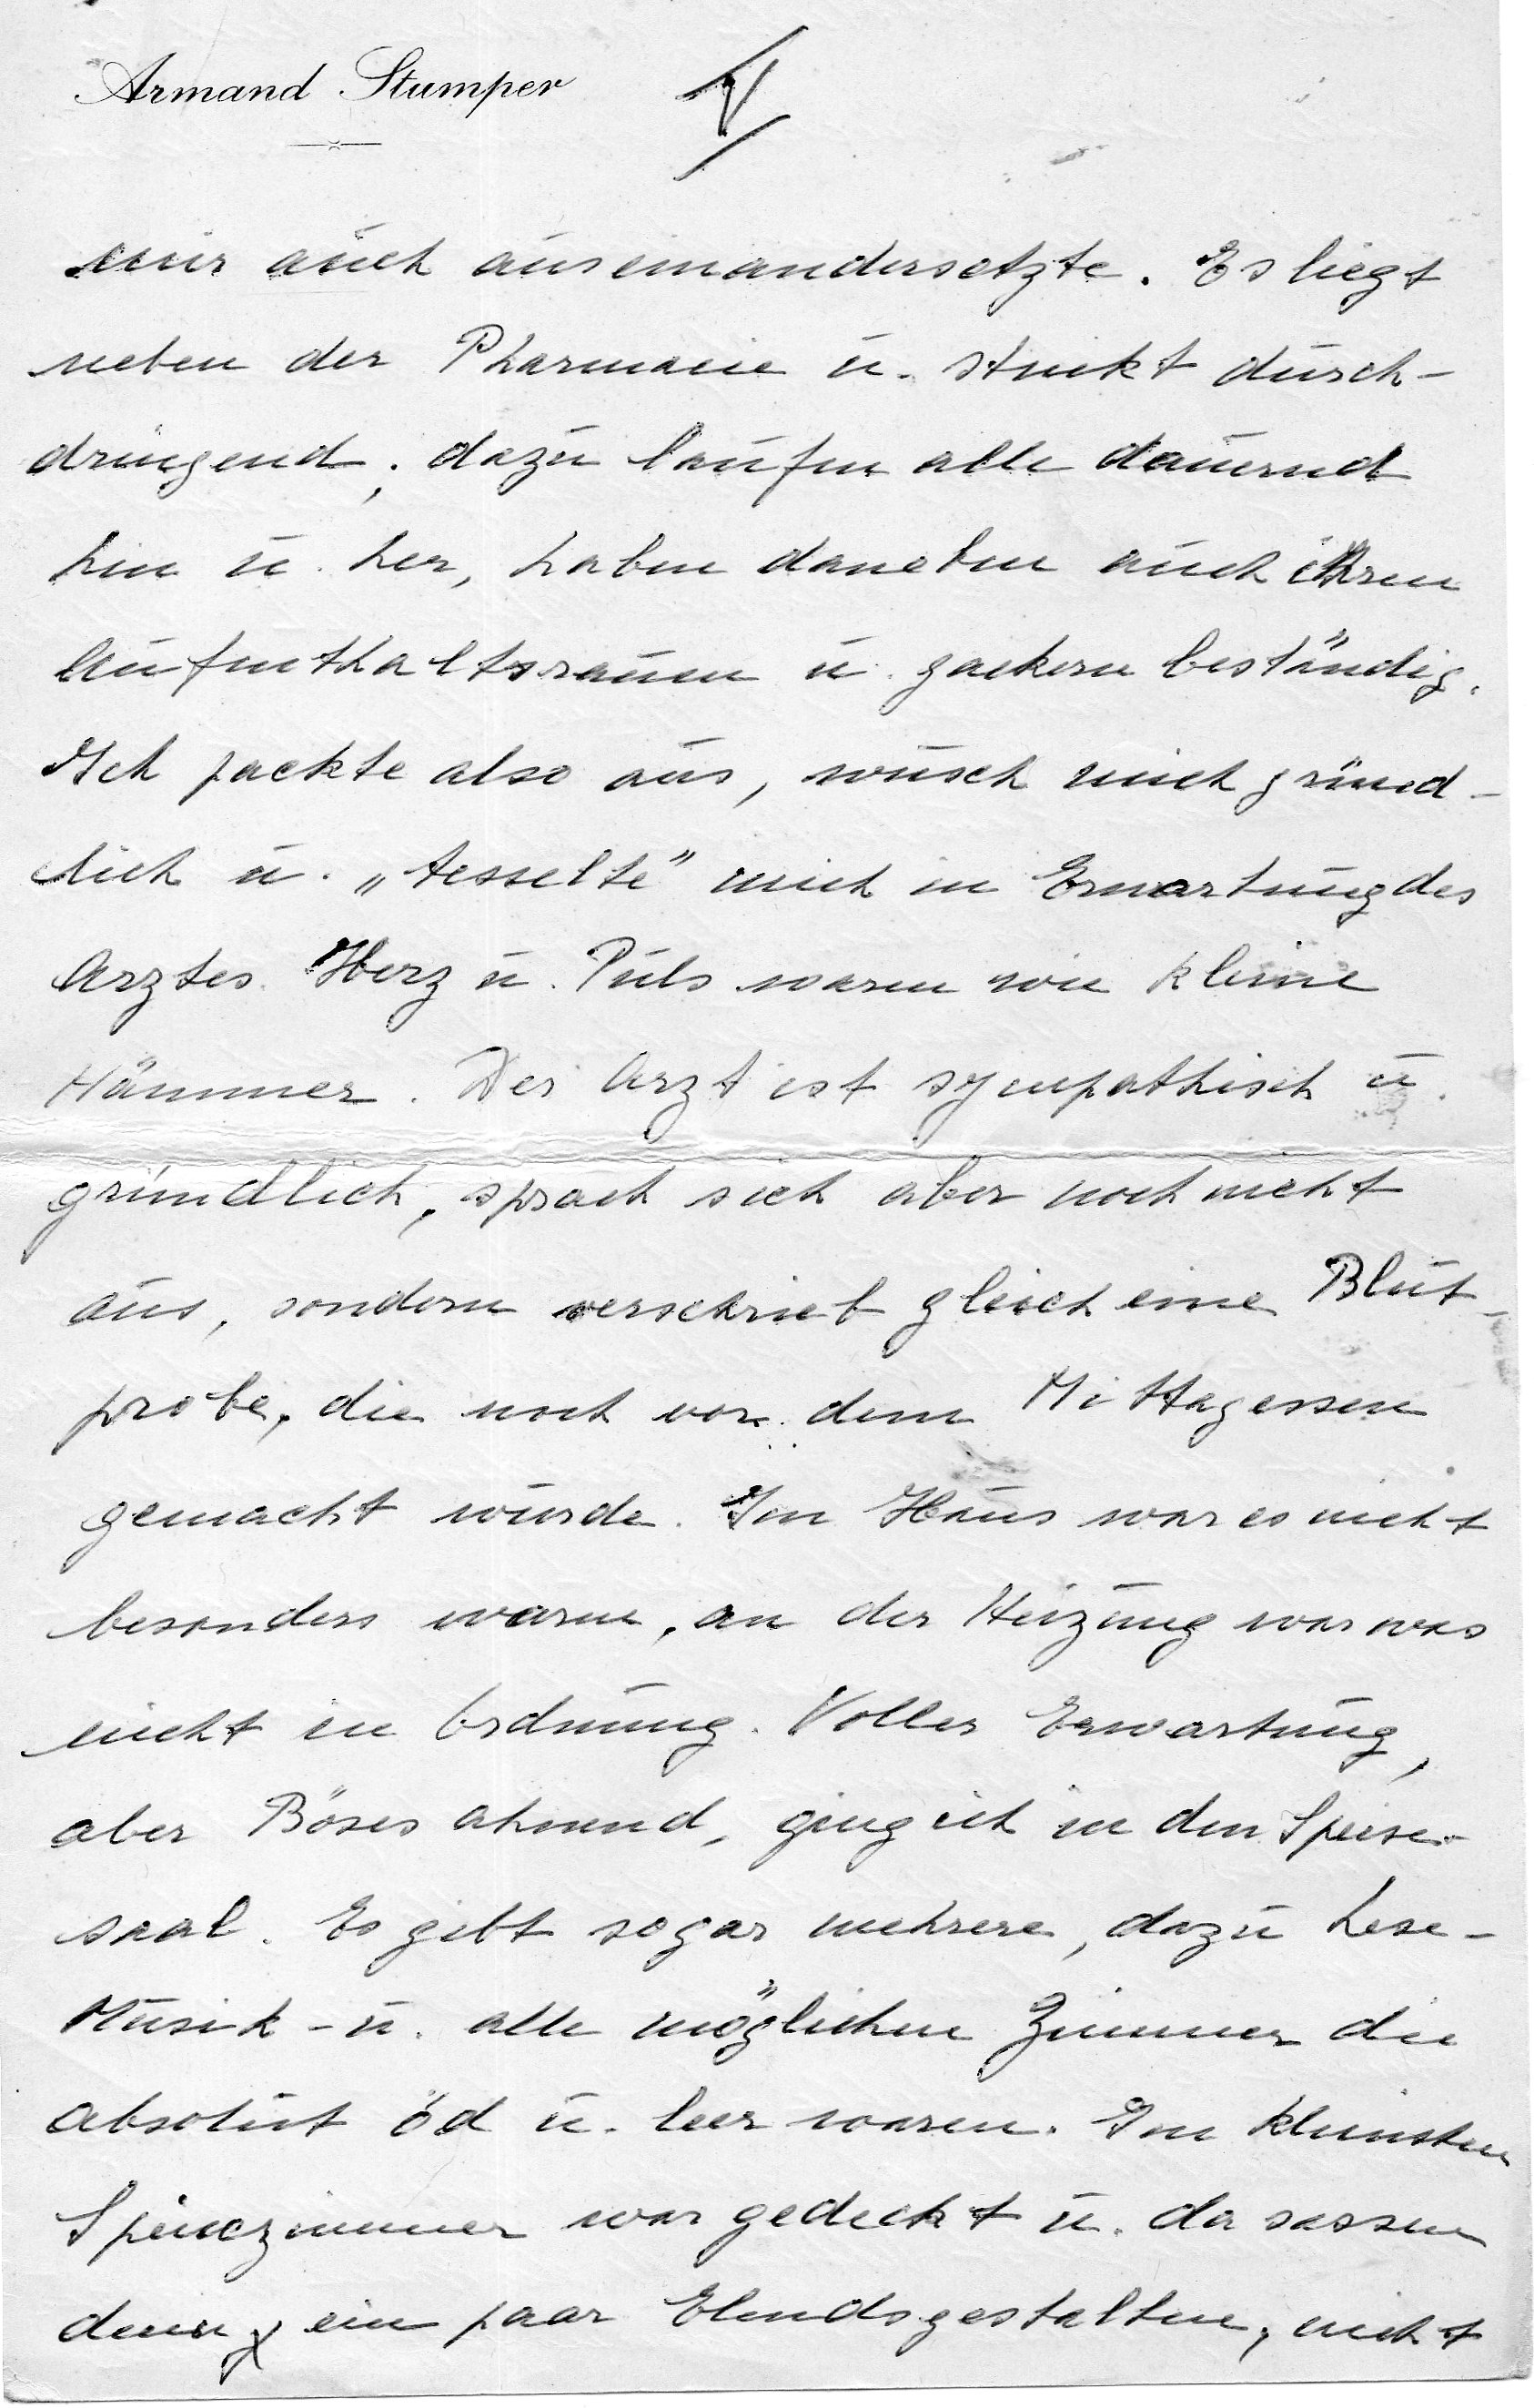 Armand Stumper
V
mir auch auseinandersetzte. Es liegt
neben der Pharmacie u. stinkt durch-
dringend, dazu laufen alle dauernd
hin u. her, haben daneben auch ihren
Aufenthaltsraum u. gackern beständig.
Ich packte also aus, wusch mich gründ-
lich u. „tesselte" mich in Erwartung des
Arztes. Herz u. Puls waren wie kleine
Hämmer. Der Arzt ist sympathisch u.
gründlich, sprach sich aber noch nicht
aus, sondern verschrieb gleich eine Blut-
probe, die noch vor dem Mittagessen
gemacht wurde. Im Haus war es nicht
besonders warm, an der Heizung war was
nicht in Ordnung. Voller Erwartung,
aber Böses ahnend, ging ich in den Speise-
saal. Es gibt sogar mehrere, dazu Lese-
Musik- u. alle möglichen Zimmer die
absolut öd u. leer waren. Im kleinsten
Speisezimmer war gedeckt u. da sassen
denn ein paar Elendsgestalten, nicht